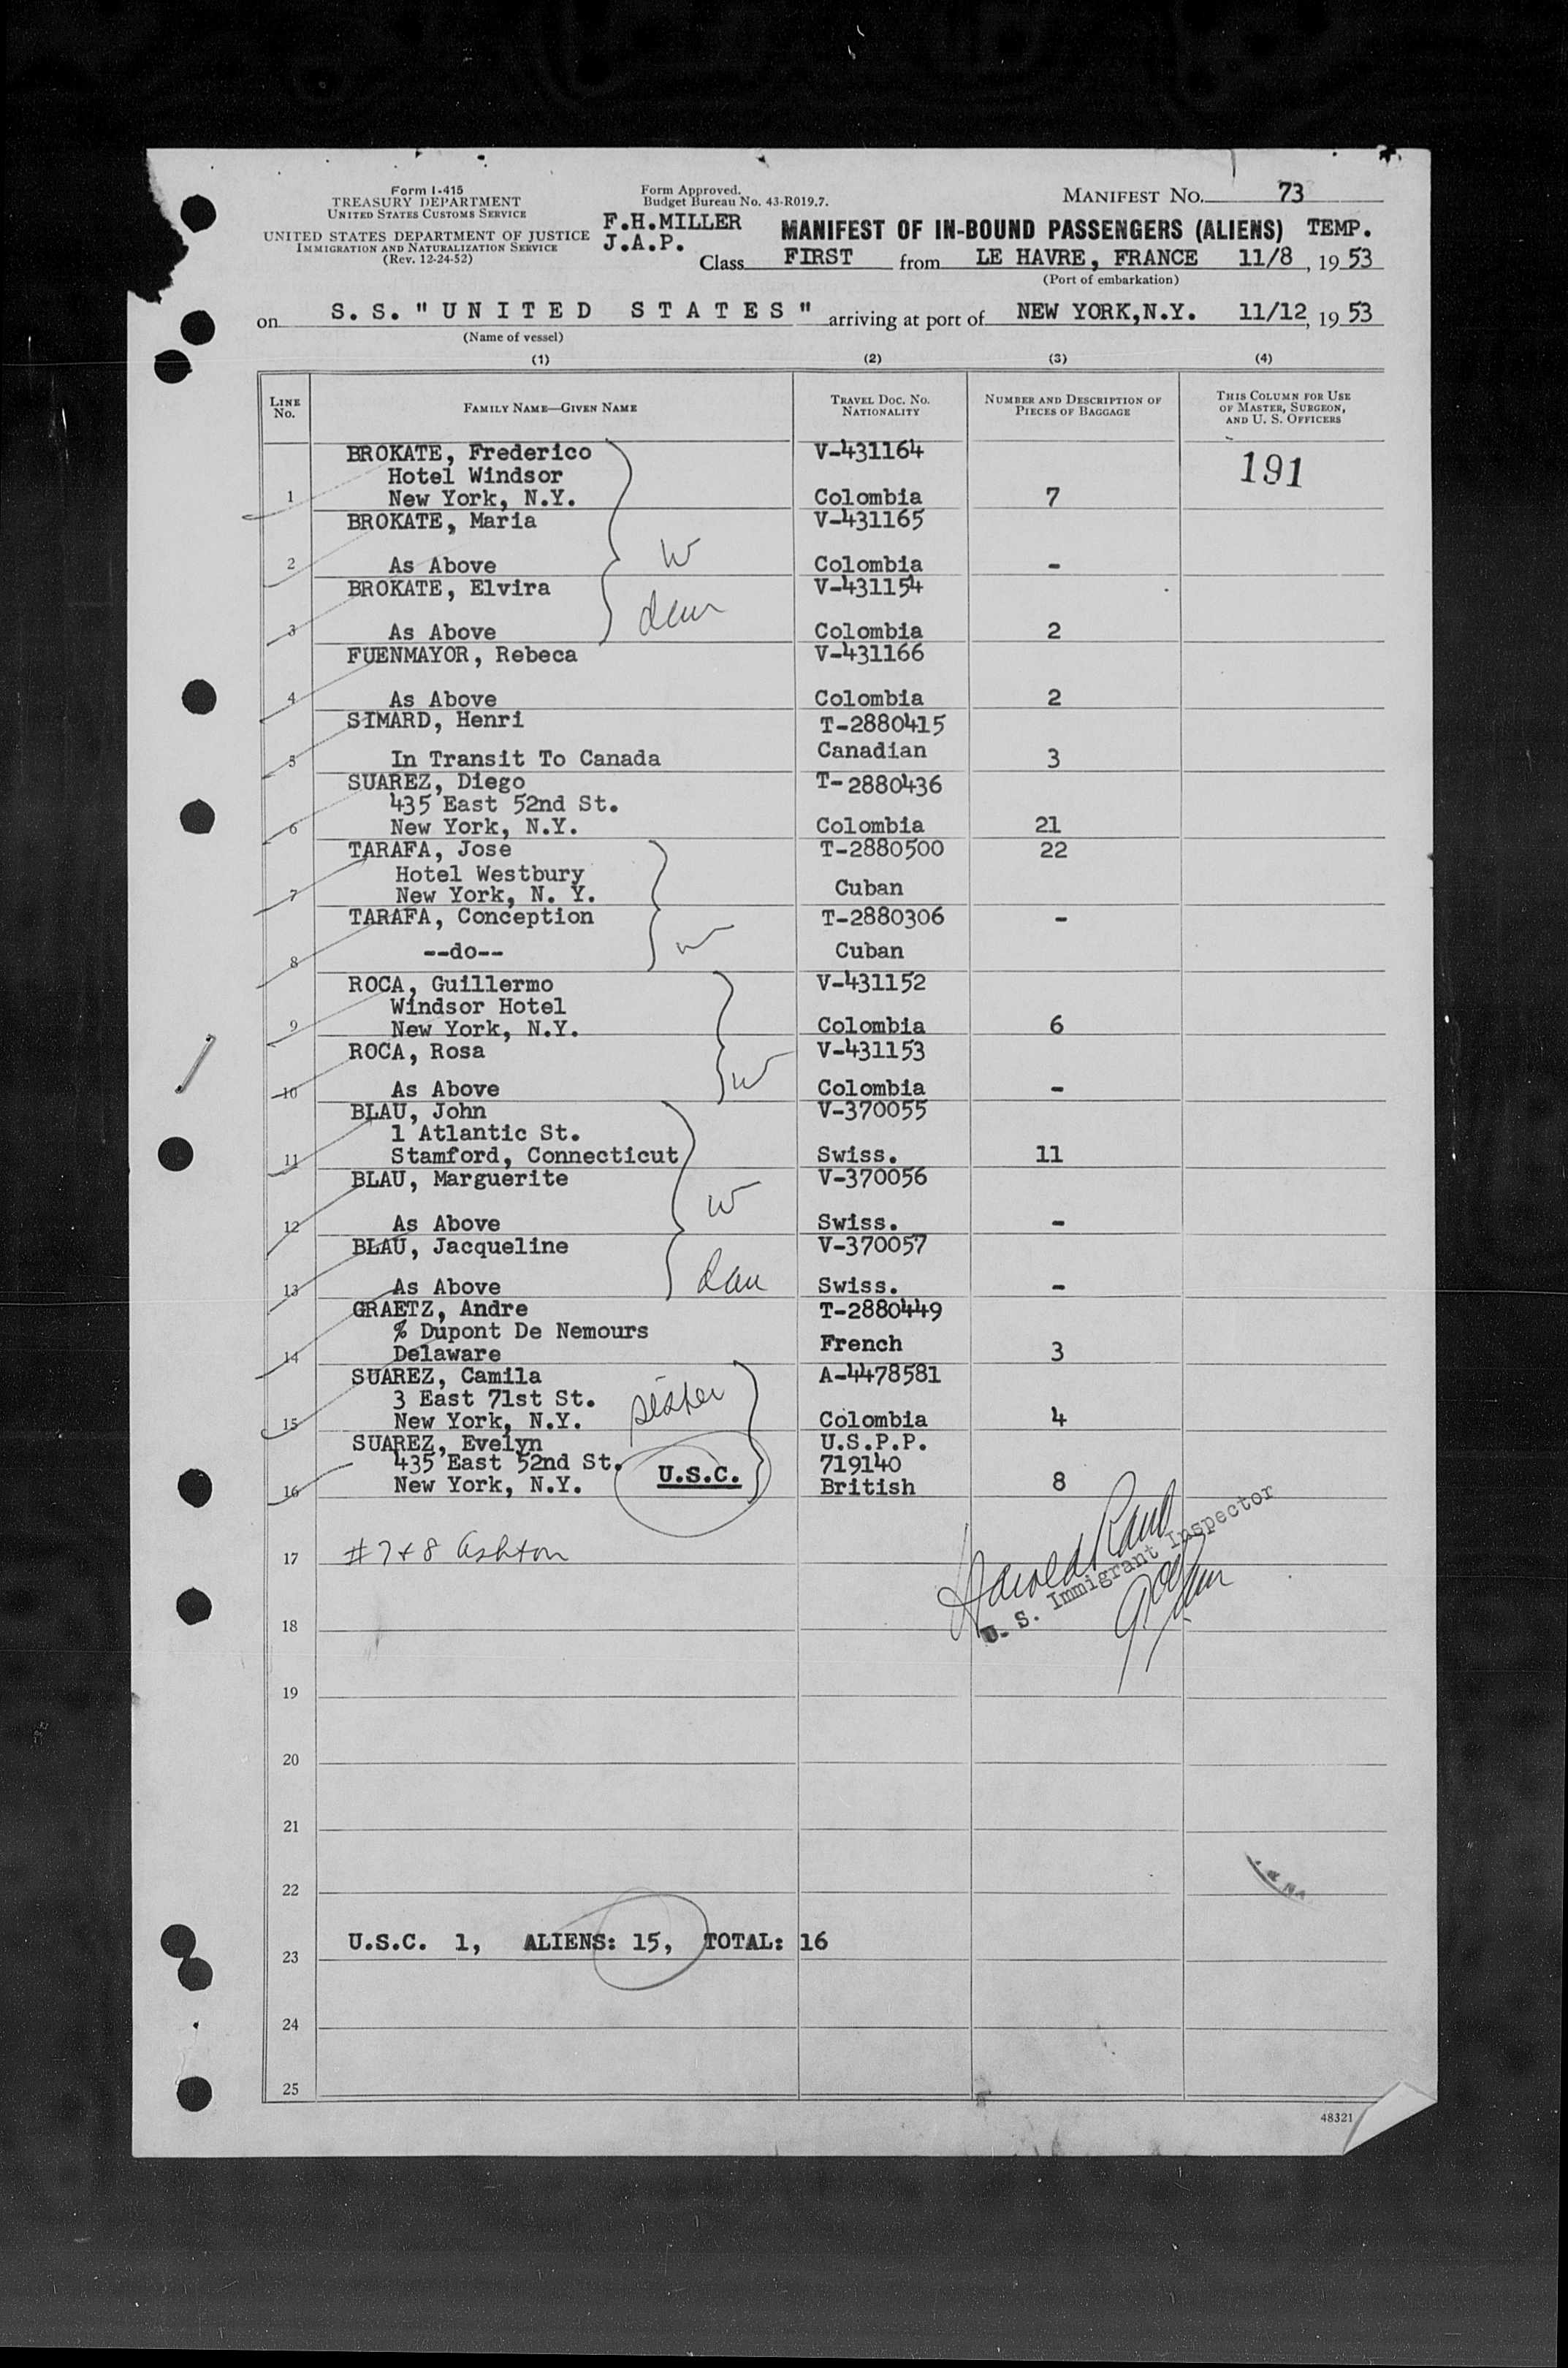 Form I-415
TREASURY DEPARTMENT
UNITED STATES CUSTOMS SERVICE
UNITED STATES DEPARTMENT OF JUSTICE
IMMIGRATION AND NATURALIZATION SERVICE
(Rev. 12-24-52)
Form Approved.
Budget Bureau No. 43-R019.7.
F.H.MILLER
J.A.P.
MANIFEST NO. 73
MANIFEST OF IN-BOUND PASSENGERS (ALIENS) TEMP.
Class FIRST from LE HAVRE, FRANCE 11/8, 19 53
(Port of embarkation)
on S.S."UNITED STATES" arriving at port of NEW YORK,N.Y. 11/12, 19 53
(Name of vessel)
(1) (2) (3) (4)
LINE NO. FAMILY NAME—GIVEN NAME TRAVEL DOC. NO. NATIONALITY NUMBER AND DESCRIPTION OF PIECES OF BAGGAGE THIS COLUMN FOR USE OF MASTER, SURGEON, AND U. S. OFFICERS
BROKATE, Frederico V-431164 191
Hotel Windsor
1 New York, N.Y. Colombia 7
BROKATE, Maria V-431165
2 As Above W Colombia -
BROKATE, Elvira V-431154
3 As Above Colombia 2
FUENMAYOR, Rebeca V-431166
4 As Above Colombia 2
SIMARD, Henri T-2880415
5 In Transit To Canada Canadian 3
SUAREZ, Diego T-2880436
435 East 52nd St.
6 New York, N.Y. Colombia 21
TARAFA, Jose T-2880500 22
Hotel Westbury
7 New York, N. Y. Cuban
TARAFA, Conception T-2880306 -
8 --do-- w Cuban
ROCA, Guillermo V-431152
Windsor Hotel
9 New York, N.Y. Colombia 6
ROCA, Rosa V-431153
10 As Above w Colombia -
BLAU, John V-370055
1 Atlantic St.
11 Stamford, Connecticut Swiss. 11
BLAU, Marguerite V-370056
12 As Above w Swiss. -
BLAU, Jacqueline V-370057
13 As Above dau Swiss. -
GRAETZ, Andre T-2880449
% Dupont De Nemours
14 Delaware French 3
SUAREZ, Camila A-4478581
3 East 71st St. sister
15 New York, N.Y. Colombia 4
SUAREZ, Evelyn U.S.P.P.
435 East 52nd St. U.S.C. 719140
16 New York, N.Y. British 8
17 #7+8 Ashton
Harold Rand
U. S. Immigrant Inspector
18
19
20
21
22
23 U.S.C. 1, ALIENS: 15, TOTAL: 16
24
25
48321